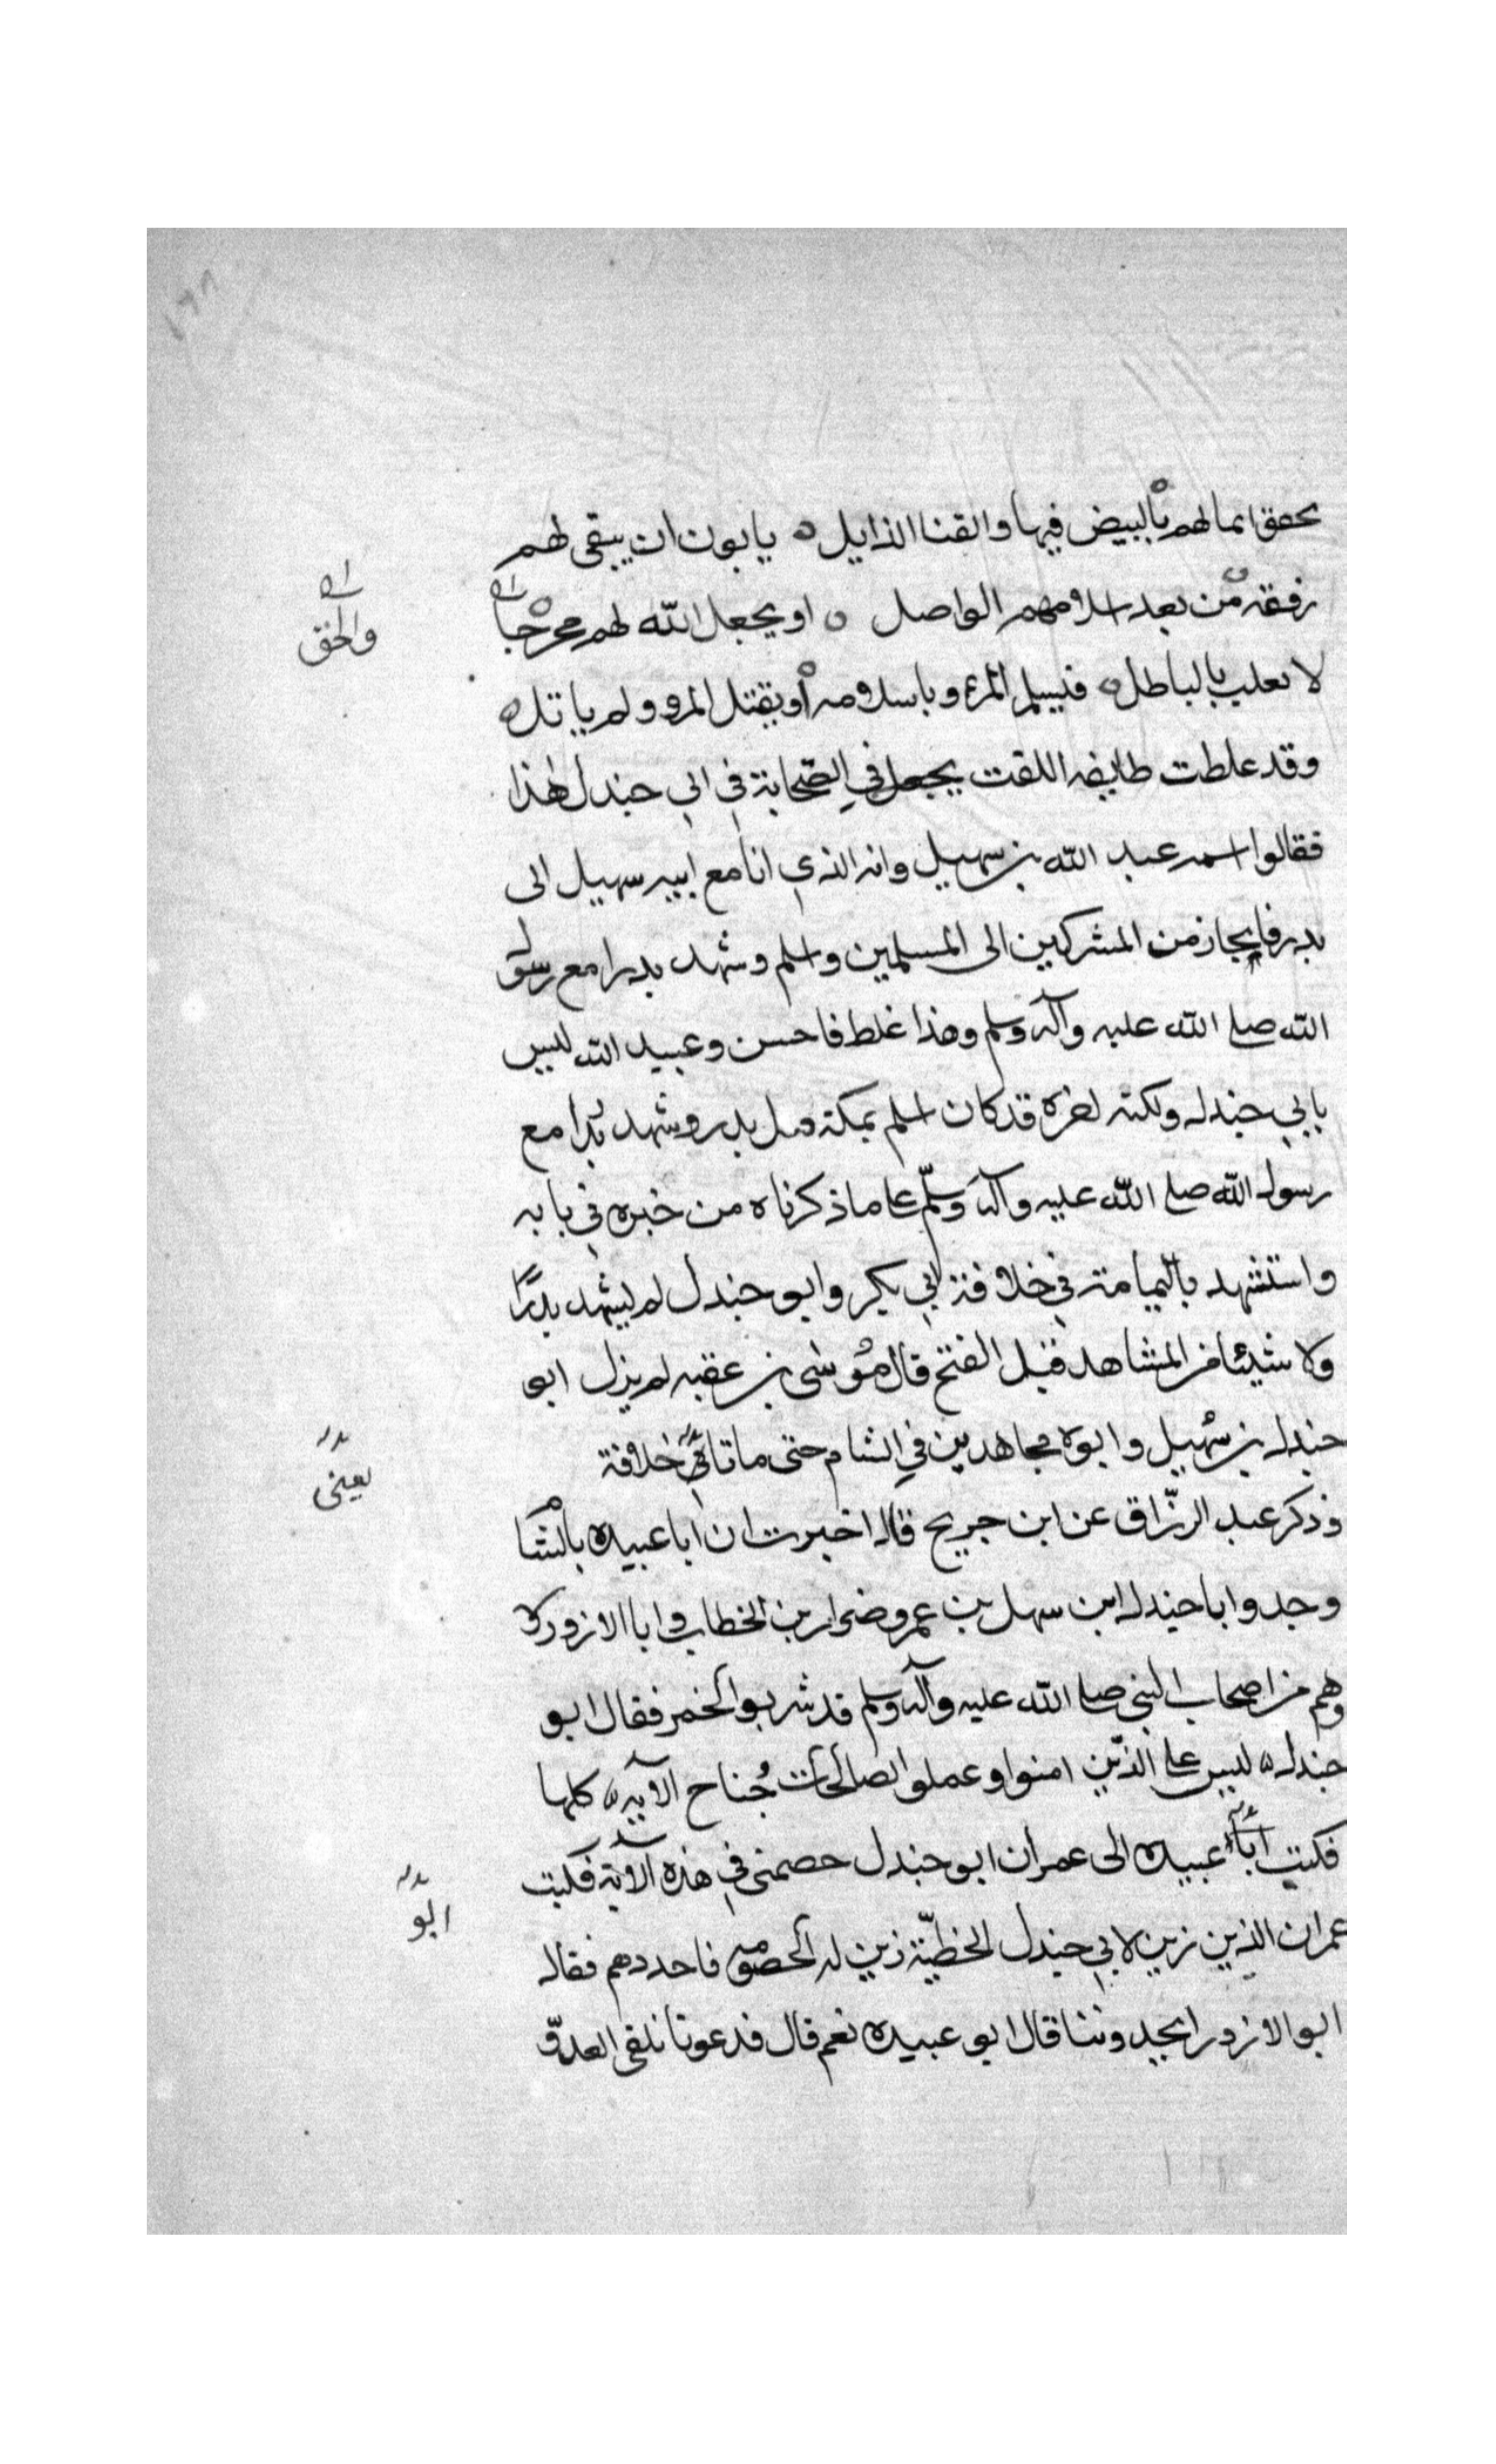 تحقق ايمالهم بالبيض فيها والقنا الذابل ه يابون ان يبقى لهم
رفقة من بعد اسلامهم الواصل ه او يجعل الله لهم مخرجا
والحق
لا يغلب بالباطل ه فيسلم المرؤ باسلامه او يقتل المرو ولم ياتل ه
وقد غلطت طايفه اللقت في الصحابة في ابي جندل هذا
فقالوا اسمه عبد الله بن سهيل وانه الذي اتا مع ابيه سهيل الى
بدر فانحاز من المشركين الى المسلمين واسلم وشهد بدرا مع رسول
الله صلى الله عليه وآله وسلم وهذا غلط فاحش وعبيد الله ليس
بابي جندل ولكنه اخوه قد كان اسلم بمكة قبل بدر وشهد بدرا مع
رسول الله صلى الله عليه وآله وسلم على ما ذكرناه من خبره في بابه
واستشهد باليمامة في خلافة ابي بكر وابو جندل لم يشهد بدرًا
ولا شيئا من المشاهد قبل الفتح قال موسى بن عقبه لم يزل ابو
جندل بن سهيل وابوه مجاهدين في الشام حتى ماتا في خلافة
يعني
وذكر عبد الرزّاق عن ابن جريج قال اخبرت ان ابا عبيده بالشام
وجدوا ابا جندل ابن سهل بن عمرو وضرار بن الخطاب وابا الازور
وهم من اصحاب النبي صلى الله عليه وآله وسلم قد شربوا الخمر فقال ابو
جندل ه ليس على الذين امنوا وعملوا الصالحات جُناح الآيه ه كلها
فكتب ابا عبيده الى عمر ان ابو جندل خصمني في هذه الآية فكتب
ابو
عمر ان الذين زين لابي جندل الخطيّة زين له الخصومه فاحددهم فقال
ابو الازور اتحدوننا قال ابو عبيده نعم قال فدعونا نلقى العدوّ